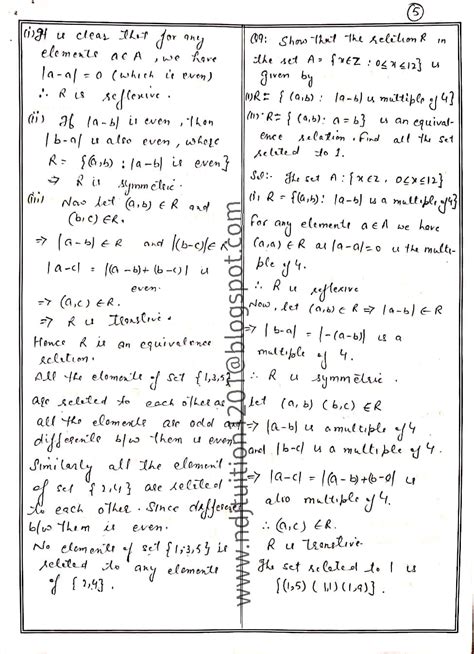 5
(i) It is clear that for any
elements a ∈ A, we have
|a-a| = 0 (which is even)
∴ R is reflexive.
(ii) If |a-b| is even, then
|b-a| is also even, where
R = {(a,b) : |a-b| is even}
⇒ R is symmetric.
(iii) Now let (a,b) ∈ R and
(b,c) ∈ R.
⇒ |a-b| ∈ R and |(b-c)| ∈ R
|a-c| = |(a-b)+(b-c)| is
even.
⇒ (a,c) ∈ R.
⇒ R is Transtive.
Hence R is an equivalence
relation.
All the elements of set {1,3,5}
are related to each other as
all the elements are odd and
difference b/w them is even
Similarly all the element
of set {2,4} are related
to each other. Since difference
b/w them is even.
No elements of set {1,3,5} is
related to any elements
of {2,4}.
Q9: Show that the relation R in
the set A = {x∈Z : 0≤x≤12} is
given by
(i) R = {(a,b): |a-b| is multiple of 4}
(ii) R = {(a,b): a=b} is an equival-
ence relation. Find all the set
related to 1.
Sol:- The set A : {x∈Z, 0≤x≤12}
(i) R = {(a,b): |a-b| is a multiple of 4}
For any elements a∈A we have
(a,a) ∈ R as |a-a|=0 is the multi-
ple of 4.
∴ R is reflexive
Now, let (a,b) ∈ R ⇒ |a-b| ∈ R
⇒ |b-a| = |-(a-b)| is a
multiple of 4.
∴ R is symmetric.
Let (a,b) (b,c) ∈ R
⇒ |a-b| is a multiple of 4
and |b-c| is a multiple of 4.
⇒ |a-c| = |(a-b)+(b-c)| is
also multiple of 4.
∴ (a,c) ∈ R.
R is Transtive.
The set related to 1 is
{(1,5) (1,1) (1,9)}.
www.ndjtuition1201@blogspot.com